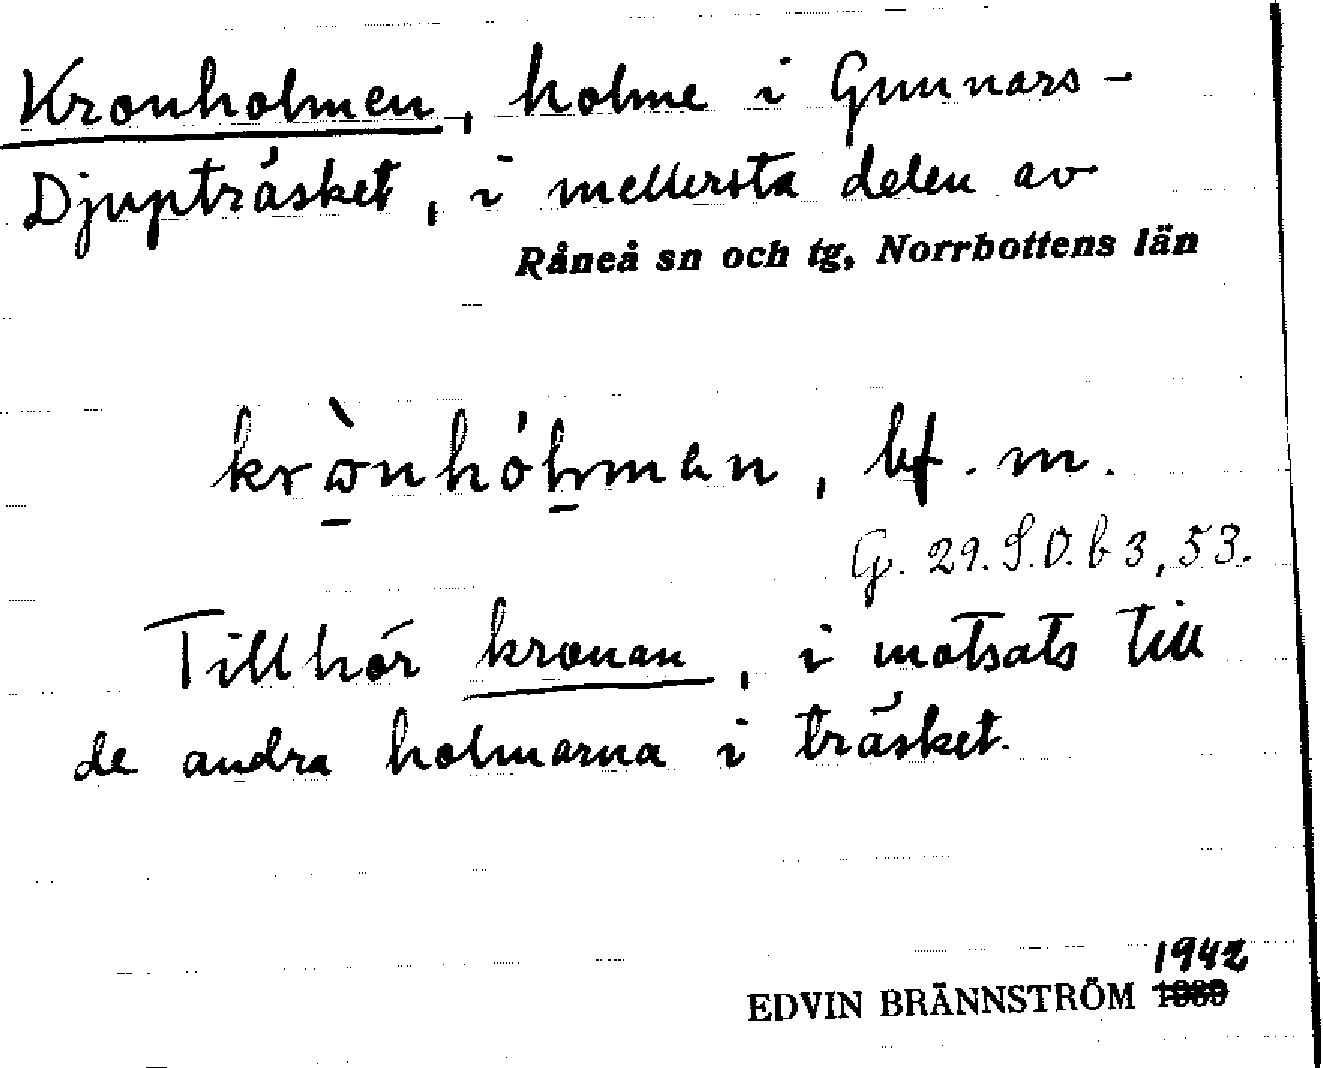 Kronholmen, holme i Gunnars-
Djupträsket, i mellersta delen av
Råneå sn och tg, Norrbottens län
krònhólman, bf. m.
G. 29. S.D. b 3, 53.
Tillhör kronan, i motsats till
de andra holmarna i träsket.
1942
EDVIN BRÄNNSTRÖM 1939